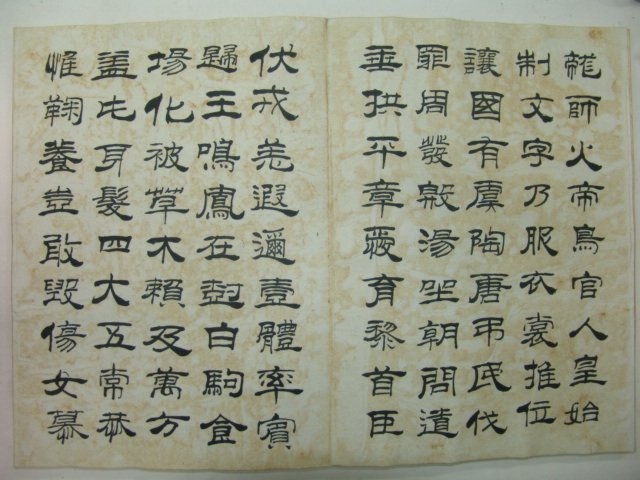 龍師火帝鳥官人皇始
制文字乃服衣裳推位
讓國有虞陶唐弔民伐
罪周發殷湯坐朝問道
垂拱平章愛育黎首臣
伏戎羌遐邇壹體率賓
歸王鳴鳳在樹白駒食
場化被草木賴及萬方
盖此身髮四大五常恭
惟鞠養豈敢毀傷女慕